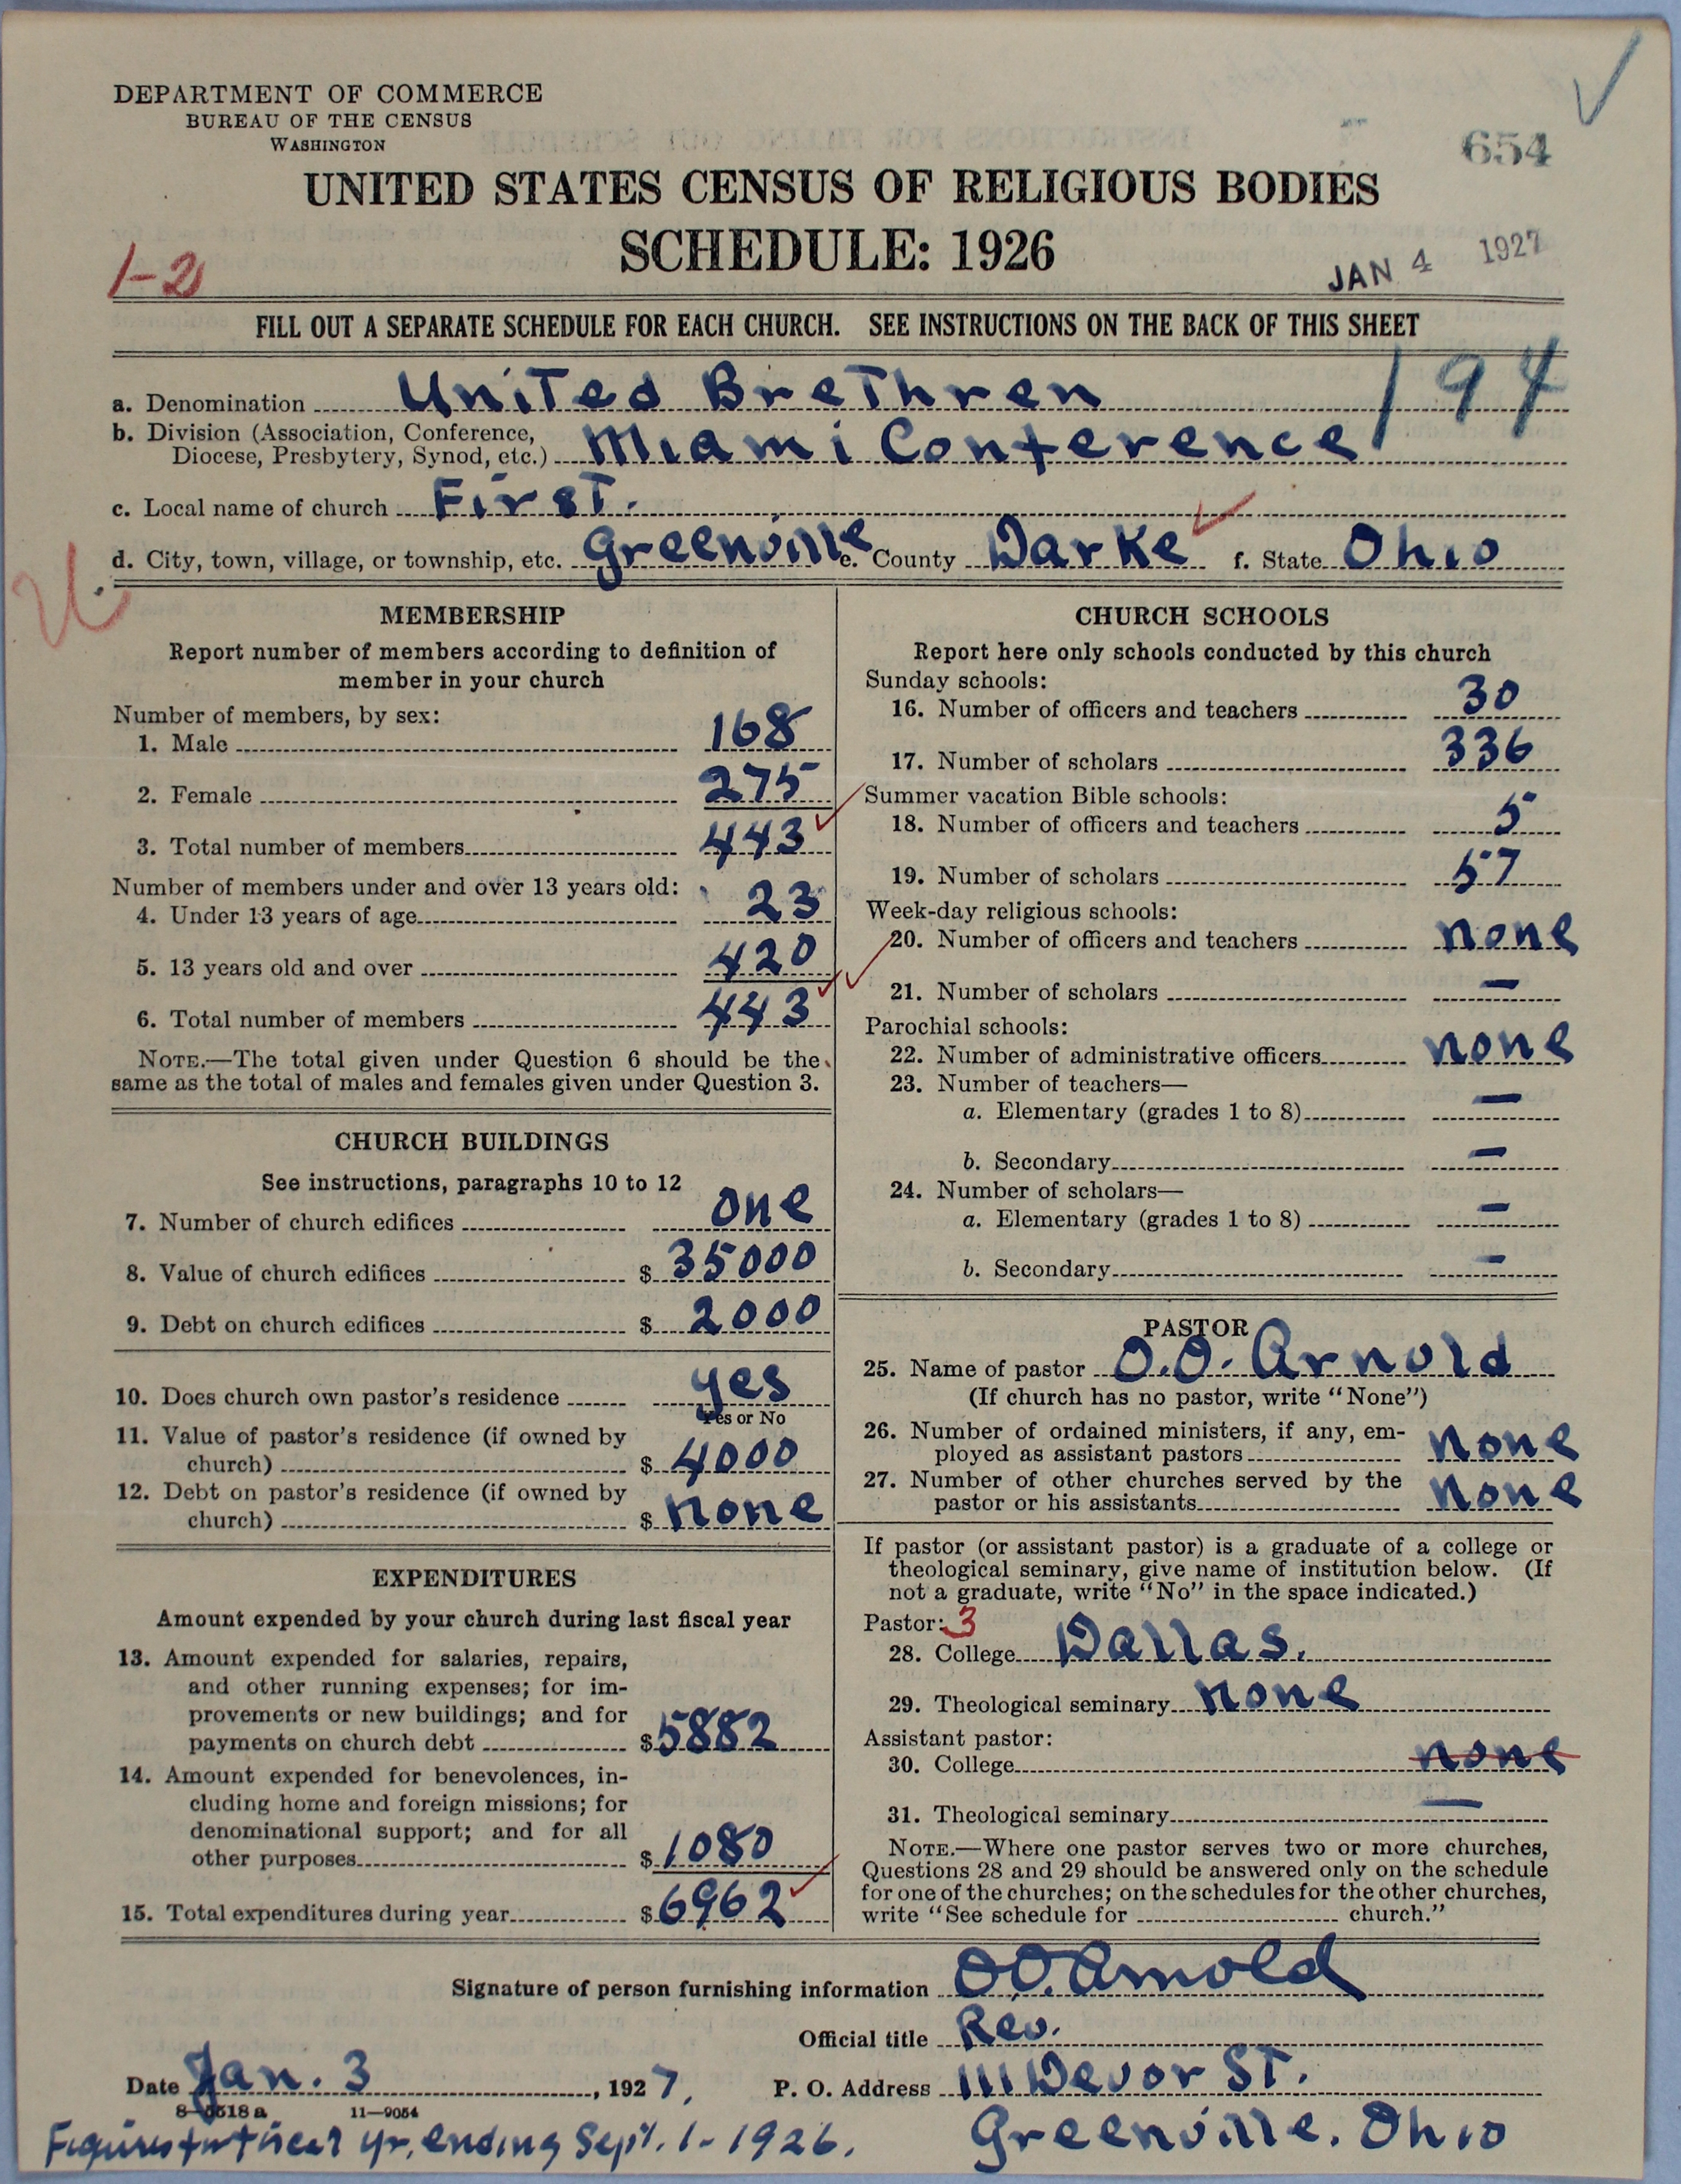 DEPARTMENT OF COMMERCE
BUREAU OF THE CENSUS
WASHINGTON
654
UNITED STATES CENSUS OF RELIGIOUS BODIES
SCHEDULE: 1926
1-2
JAN 4 1927
FILL OUT A SEPARATE SCHEDULE FOR EACH CHURCH. SEE INSTRUCTIONS ON THE BACK OF THIS SHEET
194
a. Denomination United Brethren
b. Division (Association, Conference,
Diocese, Presbytery, Synod, etc.) Miami Conference
c. Local name of church First.
d. City, town, village, or township, etc. Greenville e. County Darke f. State Ohio
MEMBERSHIP
Report number of members according to definition of
member in your church
Number of members, by sex:
1. Male 168
2. Female 275
3. Total number of members 443
Number of members under and over 13 years old:
4. Under 13 years of age 23
5. 13 years old and over 420
6. Total number of members 443
NOTE.—The total given under Question 6 should be the
same as the total of males and females given under Question 3.
CHURCH BUILDINGS
See instructions, paragraphs 10 to 12
7. Number of church edifices one
8. Value of church edifices $ 35000
9. Debt on church edifices $ 2000
10. Does church own pastor's residence yes
Yes or No
11. Value of pastor's residence (if owned by
church) $ 4000
12. Debt on pastor's residence (if owned by
church) $ none
EXPENDITURES
Amount expended by your church during last fiscal year
13. Amount expended for salaries, repairs,
and other running expenses; for im-
provements or new buildings; and for
payments on church debt $ 5882
14. Amount expended for benevolences, in-
cluding home and foreign missions; for
denominational support; and for all
other purposes $ 1080
15. Total expenditures during year $ 6962
CHURCH SCHOOLS
Report here only schools conducted by this church
Sunday schools:
16. Number of officers and teachers 30
17. Number of scholars 336
Summer vacation Bible schools:
18. Number of officers and teachers 5
19. Number of scholars 57
Week-day religious schools:
20. Number of officers and teachers none
21. Number of scholars —
Parochial schools:
22. Number of administrative officers none
23. Number of teachers—
a. Elementary (grades 1 to 8) —
b. Secondary —
24. Number of scholars—
a. Elementary (grades 1 to 8) —
b. Secondary —
PASTOR
25. Name of pastor O.O. Arnold
(If church has no pastor, write "None")
26. Number of ordained ministers, if any, em-
ployed as assistant pastors none
27. Number of other churches served by the
pastor or his assistants none
If pastor (or assistant pastor) is a graduate of a college or
theological seminary, give name of institution below. (If
not a graduate, write "No" in the space indicated.)
Pastor: 3
28. College Dallas.
29. Theological seminary none
Assistant pastor:
30. College none
31. Theological seminary —
NOTE.—Where one pastor serves two or more churches,
Questions 28 and 29 should be answered only on the schedule
for one of the churches; on the schedules for the other churches,
write "See schedule for church."
Signature of person furnishing information O.O. Arnold
Official title Rev.
Date Jan. 3, 1927, P. O. Address 111 Devor ST.
8—5518a 11—9054
Greenville, Ohio
Figures for fiscal yr. ending Sept. 1 - 1926.